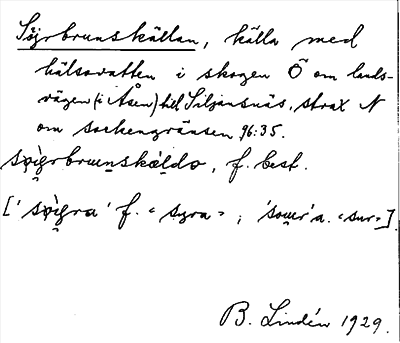 Söjrbrunskällan, källa med
hälsovatten i skogen Ö om lands-
vägen (i Åsen) till Siljansnäs, strax N
om sockengränsen 96:35.
sǫ̀i̯grbruenskä̀ldo, f. best.
['sǫ̀i̯gra' f. "syra"; 'souər' a. "sur"].
B. Lindén 1929.